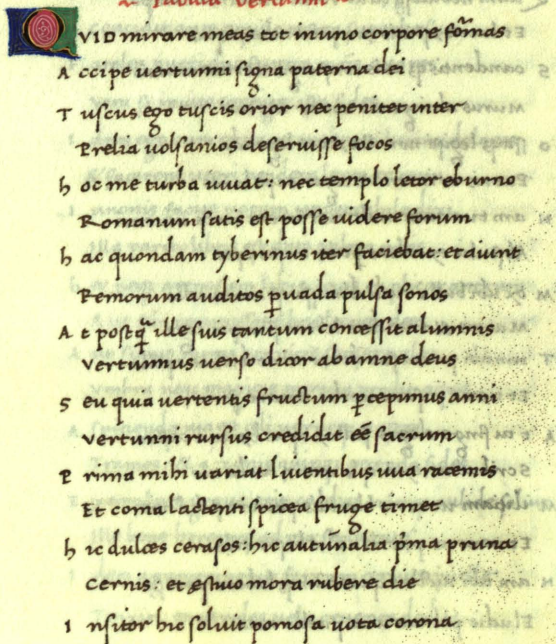 Fabula vertumni
QVID mirare meas tot in uno corpore fōmas
Accipe vertunni signa paterna dei
Tuscus ego tuscis orior nec penitet inter
Prelia volsanios deseruisse focos
hoc me turba iuuat: nec templo letor eburno
Romanum satis est posse uidere forum
hac quondam tyberinus iter faciebat: et aiunt
Remorum auditos ꝑ uada pulsa sonos
At postq̄ ille suis tantum concessit alumnis
Vertumnus verso dicor ab amne deus
Seu quia vertentis fructum ꝑcepimus anni
Vertunni rursus credidit eē sacrum
Prima mihi uariat liuentibus uua racemis
Et coma lactenti spicea fruge timet
hic dulces cerasos: hic autūnalia p̄ma pruna
Cernis: et ęstiuo mora rubere die
Insitor hic soluit pomosa uota corona